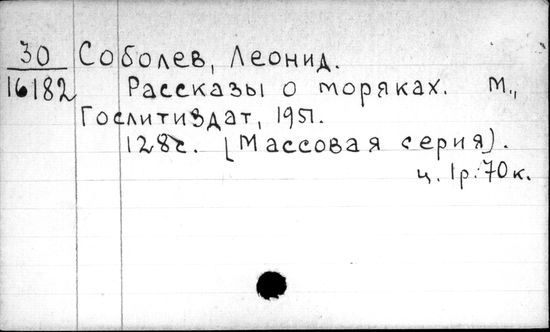 30 Соболев, Леонид.
16182 Рассказы о моряках. М.,
Гослитиздат, 1951.
128с. (Массовая серия).
ц. 1р.70к.